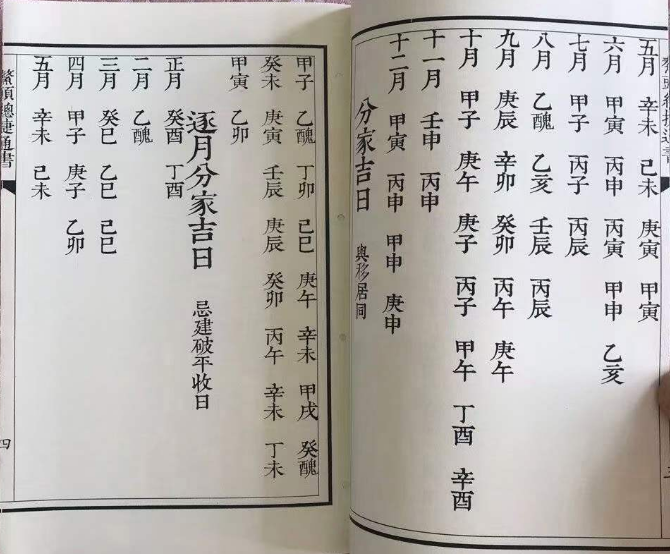 鰲頭總捷通書
五月 辛未 己未 庚寅 甲寅
六月 甲寅 丙申 丙寅 甲申 乙亥
七月 甲子 丙子 丙辰
八月 乙醜 乙亥 壬辰 丙辰
九月 庚辰 辛卯 癸卯 丙午 庚午
十月 甲子 庚午 庚子 丙子 甲午 丁酉 辛酉
十一月 壬申 丙申
十二月 甲寅 丙申 甲申 庚申
分家吉日 與移居同
甲子 乙醜 丁卯 己巳 庚午 辛未 甲戌 癸醜
癸未 庚寅 壬辰 庚辰 癸卯 丙午 辛未 丁未
甲寅 乙卯
逐月分家吉日 忌建破平收日
正月 癸酉 丁酉
二月 乙醜
三月 癸巳 乙巳 己巳
四月 甲子 庚子 乙卯
五月 辛未 己未
鰲頭總捷通書
四